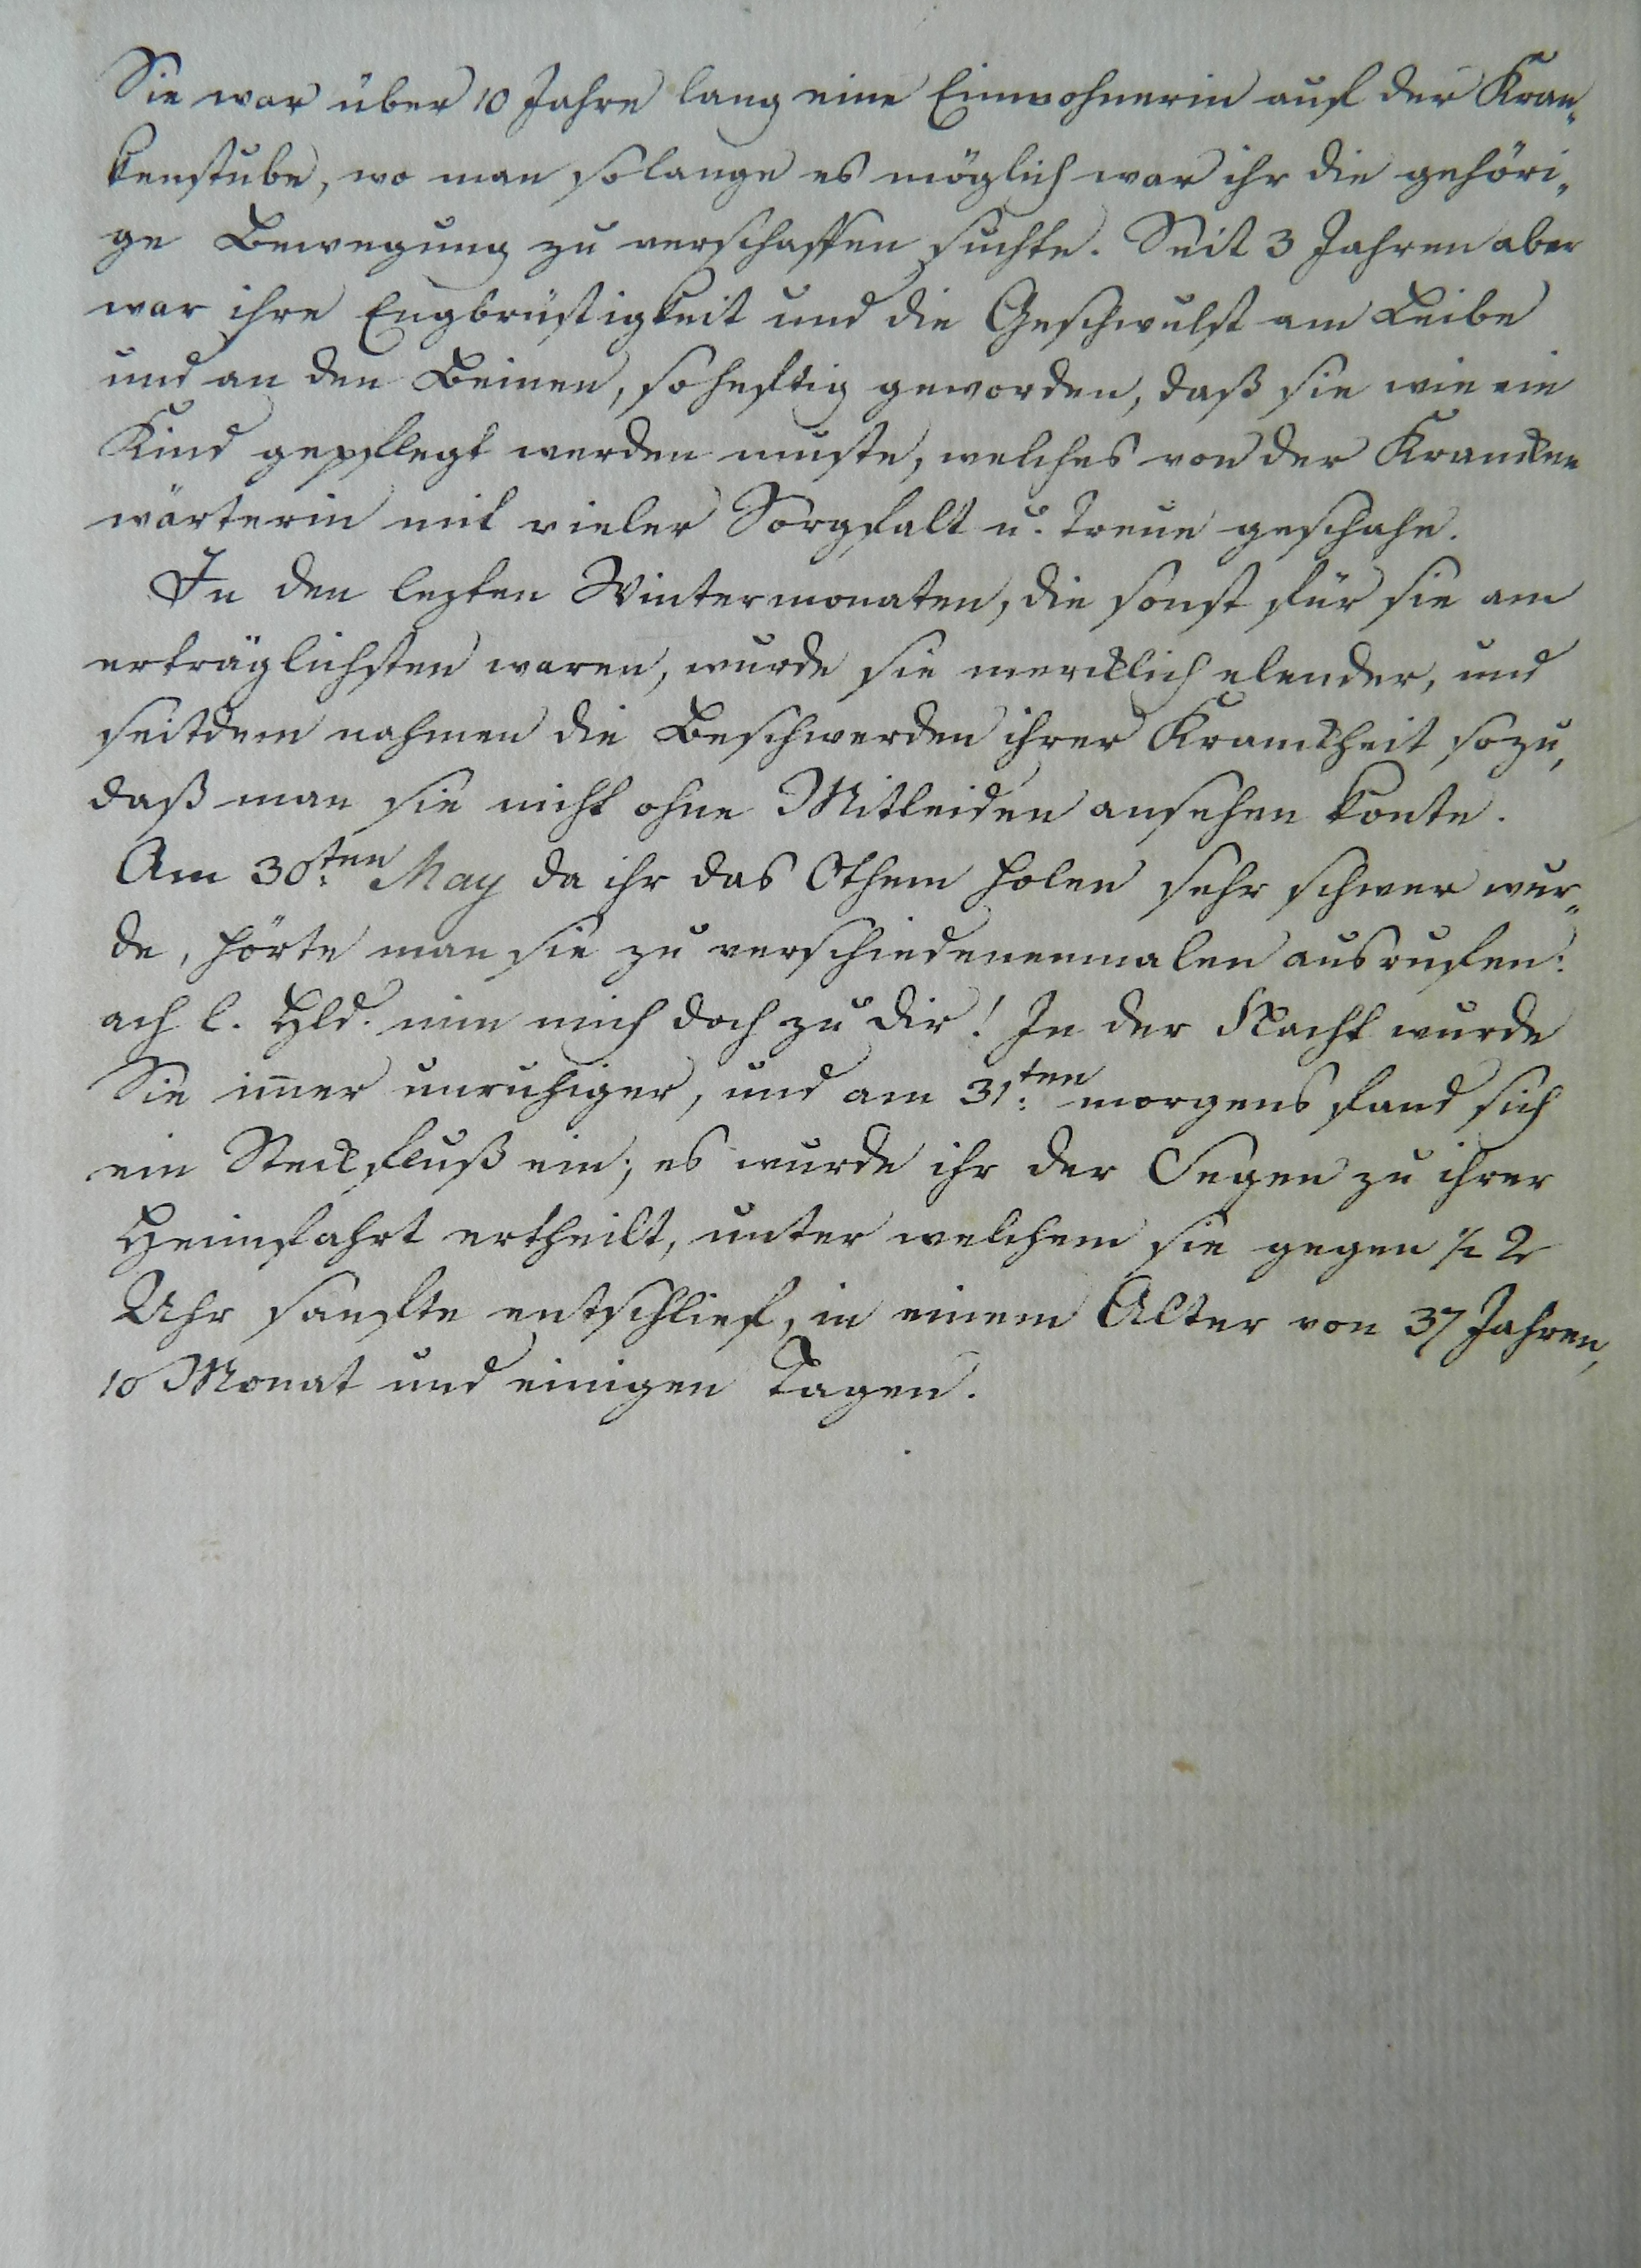 Sie war über 10 Jahre lang eine Einwohnerin auf der Kran„
kenstube, wo man solange es möglich war ihr die gehöri„
ge Bewegung zu verschaffen suchte. Seit 3 Jahren aber
war ihre Engbrüstigkeit und die Geschwulst am Leibe
und an den Beinen, so heftig geworden, daß sie wie ein
Kind gepflegt werden muste, welches von der Krancken
wärterin mit vieler Sorgfalt u. Treue geschahe.
In den lezten Wintermonaten, die sonst für sie am
erträglichsten waren, wurde sie mercklich elender, und
seitdem nahmen die Beschwerden ihrer Kranckheit so zu,
daß man sie nicht ohne Mitleiden ansehen konte.
Am 30ten May da ihr das Othem holen sehr schwer wur„
de, hörte man sie zu verschiedenenmalen ausrufen:
ach l. Hld. nim mich doch zu dir! In der Nacht wurde
Sie im̄er unruhiger, und am 31ten morgens fand sich
ein Steckfluß ein; es wurde ihr der Segen zu ihrer
Heimfahrt ertheilt, unter welchem sie gegen ½ 2
Uhr sanfte entschlief, in einem Alter von 37 Jahren,
10 Monat und einigen Tagen.